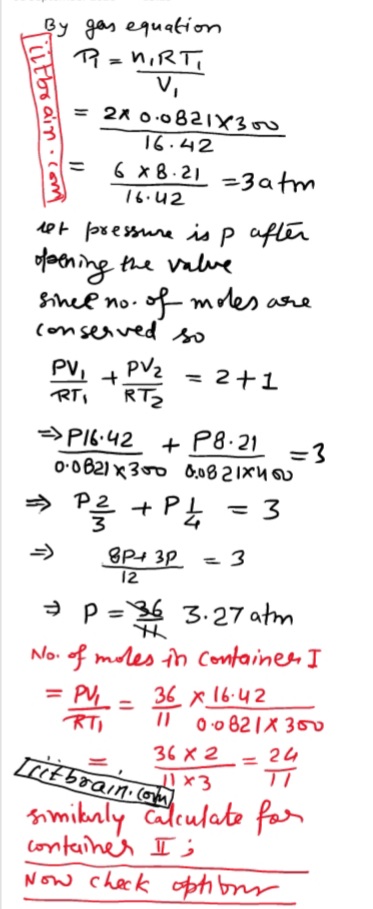 By gas equation
iitbrain.com
P1 = n1RT1 / V1
= 2x 0.0821x300 / 16.42
= 6 x 8.21 / 16.42 = 3 atm
let pressure is p after
opening the value
since no. of moles are
conserved so
PV1/RT1 + PV2/RT2 = 2+1
⇒ P16.42 / 0.0821x300 + P8.21 / 0.0821x400 = 3
⇒ P 2/3 + P 1/4 = 3
⇒ 8P+3P / 12 = 3
⇒ P = 36/11 3.27 atm
No. of moles in container I
= PV1/RT1 = 36/11 x 16.42 / 0.0821x300
= 36 x 2 / 11 x 3 = 24/11
iitbrain.com
similarly calculate for
container II ;
Now check options